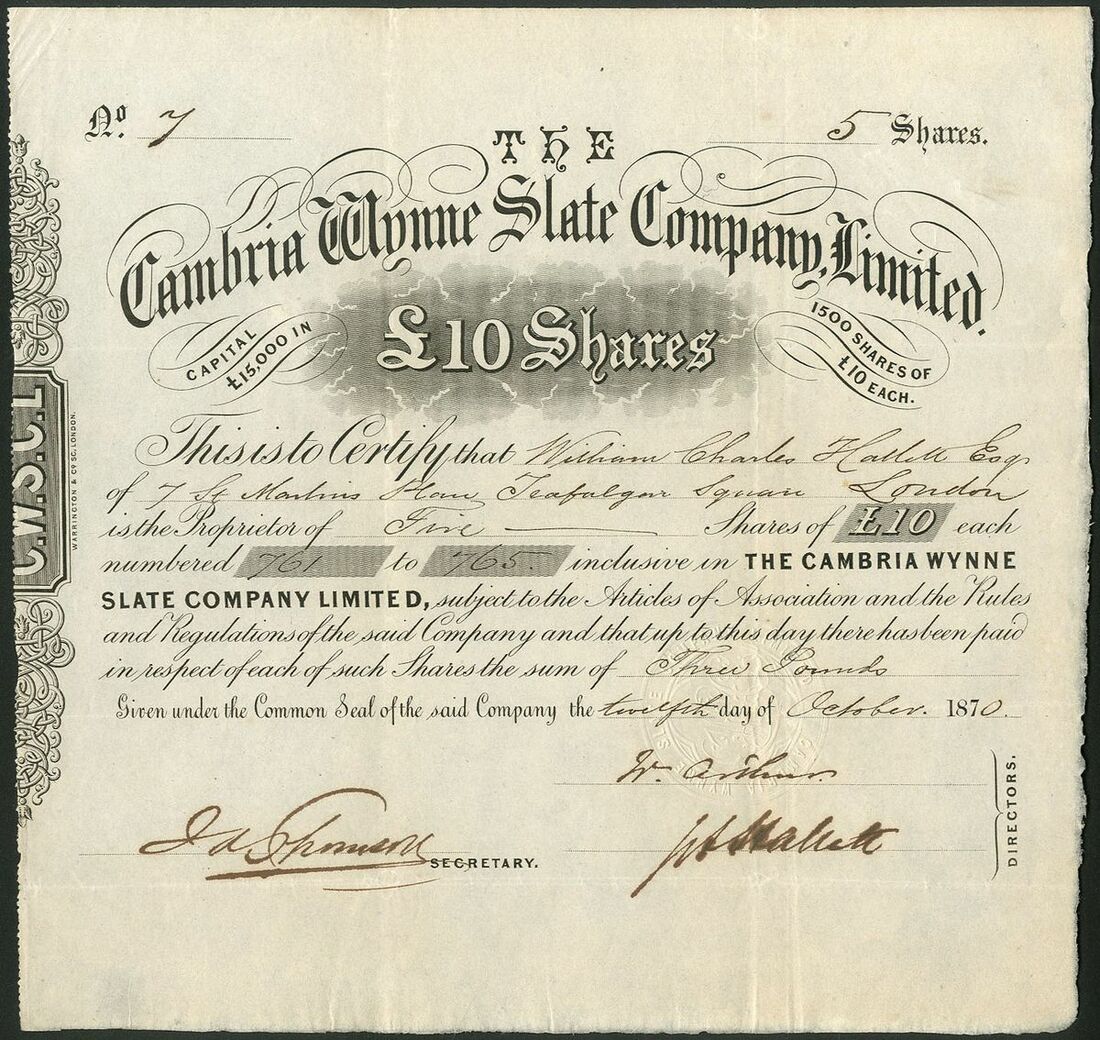 No. 7
5 Shares.
THE
Cambria Wynne Slate Company, Limited.
CAPITAL
£15,000 IN
£10 Shares
1500 SHARES OF
£10 EACH.
This is to Certify that William Charles Hallett Esq
of 7 St Martins Place Trafalgar Square London
is the Proprietor of Five Shares of £10 each
numbered 761 to 765. inclusive in THE CAMBRIA WYNNE
SLATE COMPANY LIMITED, subject to the Articles of Association and the Rules
and Regulations of the said Company and that up to this day there has been paid
in respect of each of such Shares the sum of Three Pounds
Given under the Common Seal of the said Company the twelfth day of October. 1870.
W. Arthur
Hallett
DIRECTORS.
Thomson
SECRETARY.
C.W.S.C.L
WARRINGTON & CO SC. LONDON.